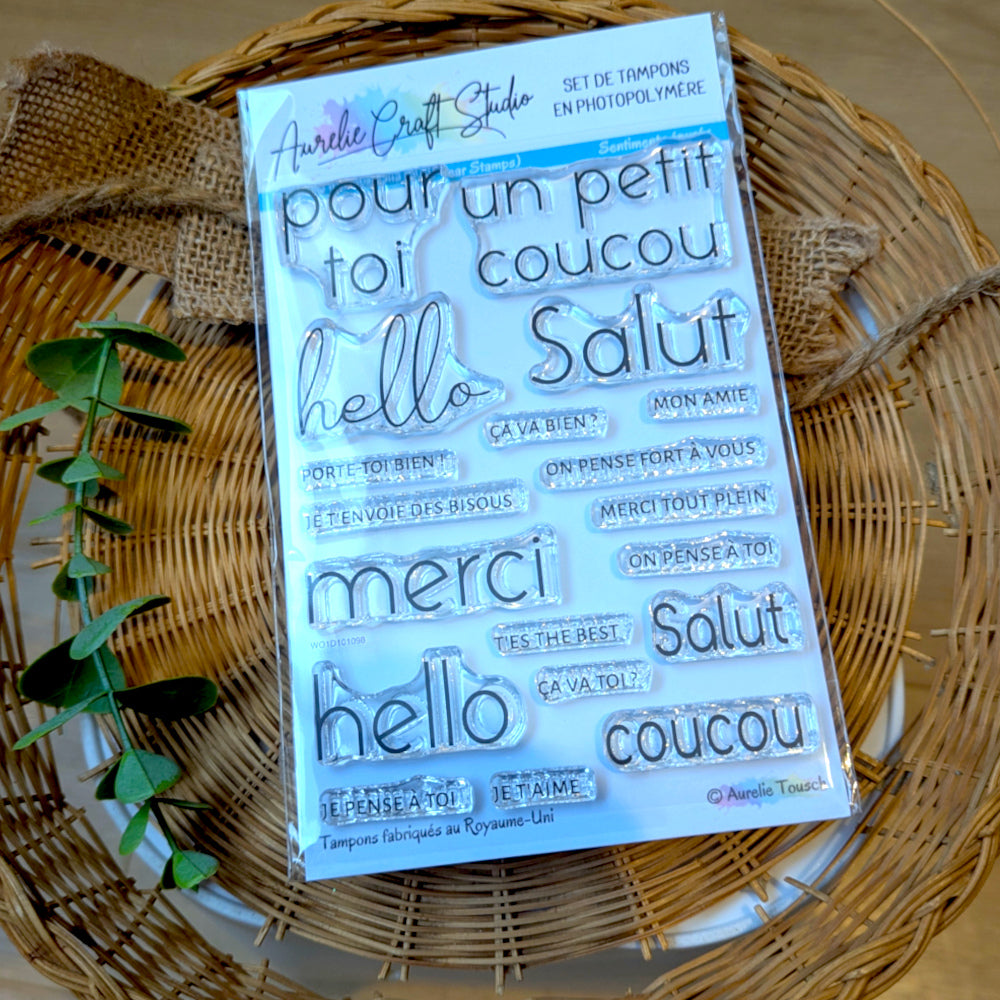 Aurelie Craft Studio
SET DE TAMPONS
EN PHOTOPOLYMÈRE
Stamps)
Sentiments
pour
toi
un petit
coucou
hello
Salut
MON AMIE
ÇA VA BIEN ?
PORTE-TOI BIEN !
ON PENSE FORT À VOUS
JE T'ENVOIE DES BISOUS
MERCI TOUT PLEIN
merci
ON PENSE À TOI
WO1D101098
T'ES THE BEST
Salut
hello
ÇA VA TOI ?
coucou
JE PENSE À TOI
JE T'AIME
© Aurelie Tousch
Tampons fabriqués au Royaume-Uni